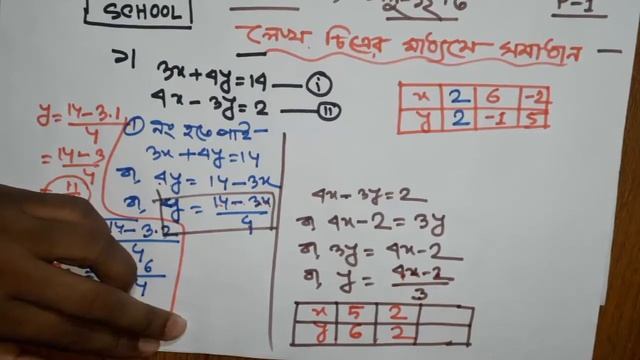 SCHOOL
P-1
লেখ্য চিত্রের মাধ্যমে সমাধান
১।
3x+4y=14 — (i)
4x-3y=2 — (ii)
x 2 6 -2
y 2 -1 5
y=14-3.1/4
=14-3/4
11
(i) নং হতে পাই-
3x+4y=14
বা, 4y=14-3x
বা, y=14-3x/4
14-3.2/4
4x-3y=2
বা, 4x-2=3y
বা, 3y=4x-2
বা, y=4x-2/3
x 5 2
y 6 2